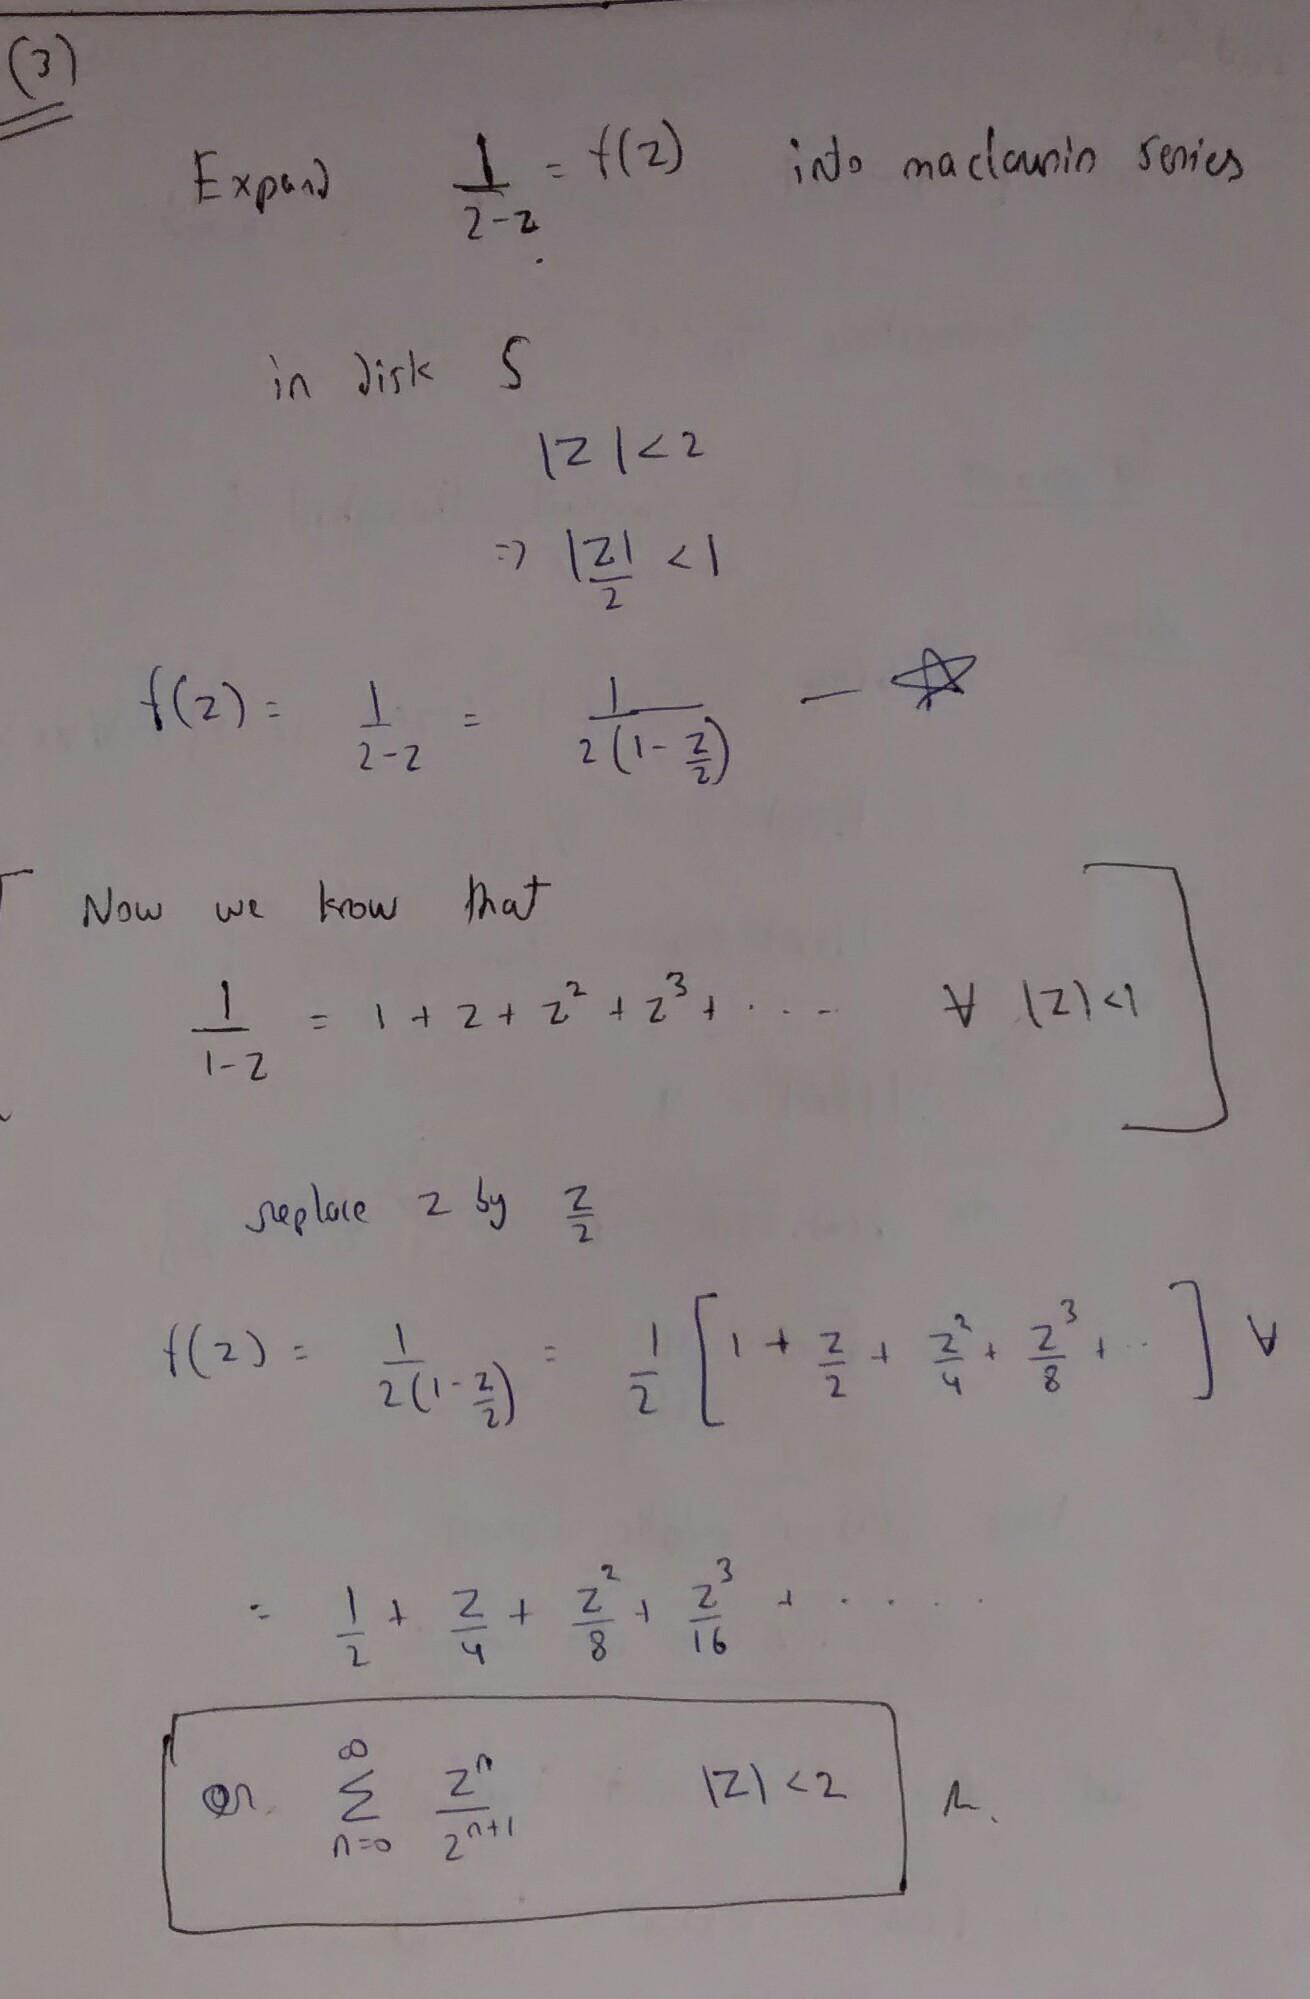 (3)
Expand 1/2-z = f(z) into maclaurin series
in disk S
|z|<2
=> |z|/2 <1
f(z) = 1/2-z = 1/2(1-z/2) — ☆
[ Now we know that
1/1-z = 1+z+z²+z³+.... ∀ |z|<1 ]
replace z by z/2
f(z) = 1/2(1-z/2) = 1/2 [1 + z/2 + z²/4 + z³/8 + ..] ∀
= 1/2 + z/4 + z²/8 + z³/16 + .....
or ∑ n=0 ∞ zⁿ/2ⁿ⁺¹ |z|<2